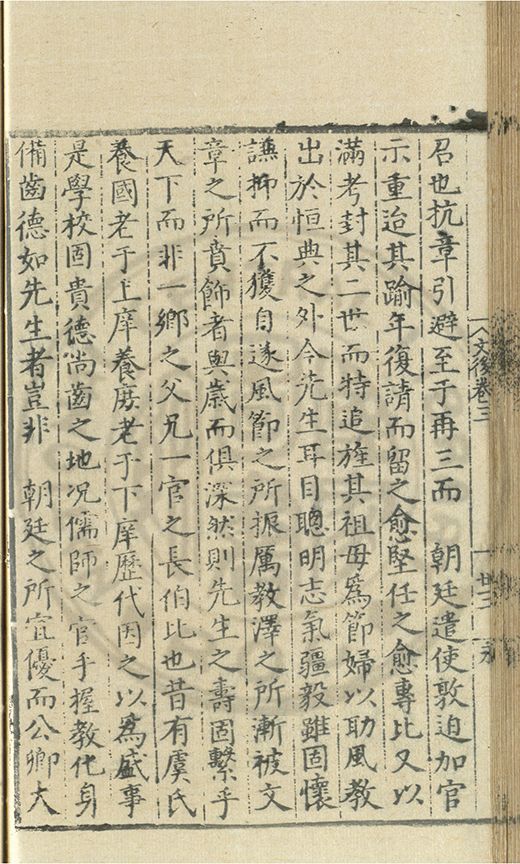 文後卷三
廿三
君也抗章引避至于再三而　朝廷遣使敦迫加官
示重迨其踰年復請而留之愈堅任之愈專比又以
滿考封其二世而特追旌其祖母爲節婦以助風教
出於恒典之外今先生耳目聰明志氣疆毅雖固懷
謙抑而不獲自遂風節之所振厲教澤之所漸被文
章之所賁飾者與歲而俱深然則先生之壽固繫乎
天下而非一鄉之父兄一官之長伯比也昔有虞氏
養國老于上庠養庶老于下庠歷代因之以爲盛事
是學校固貴德尚齒之地况儒師之官手握教化身
備齒德如先生者豈非　朝廷之所宜優而公卿大